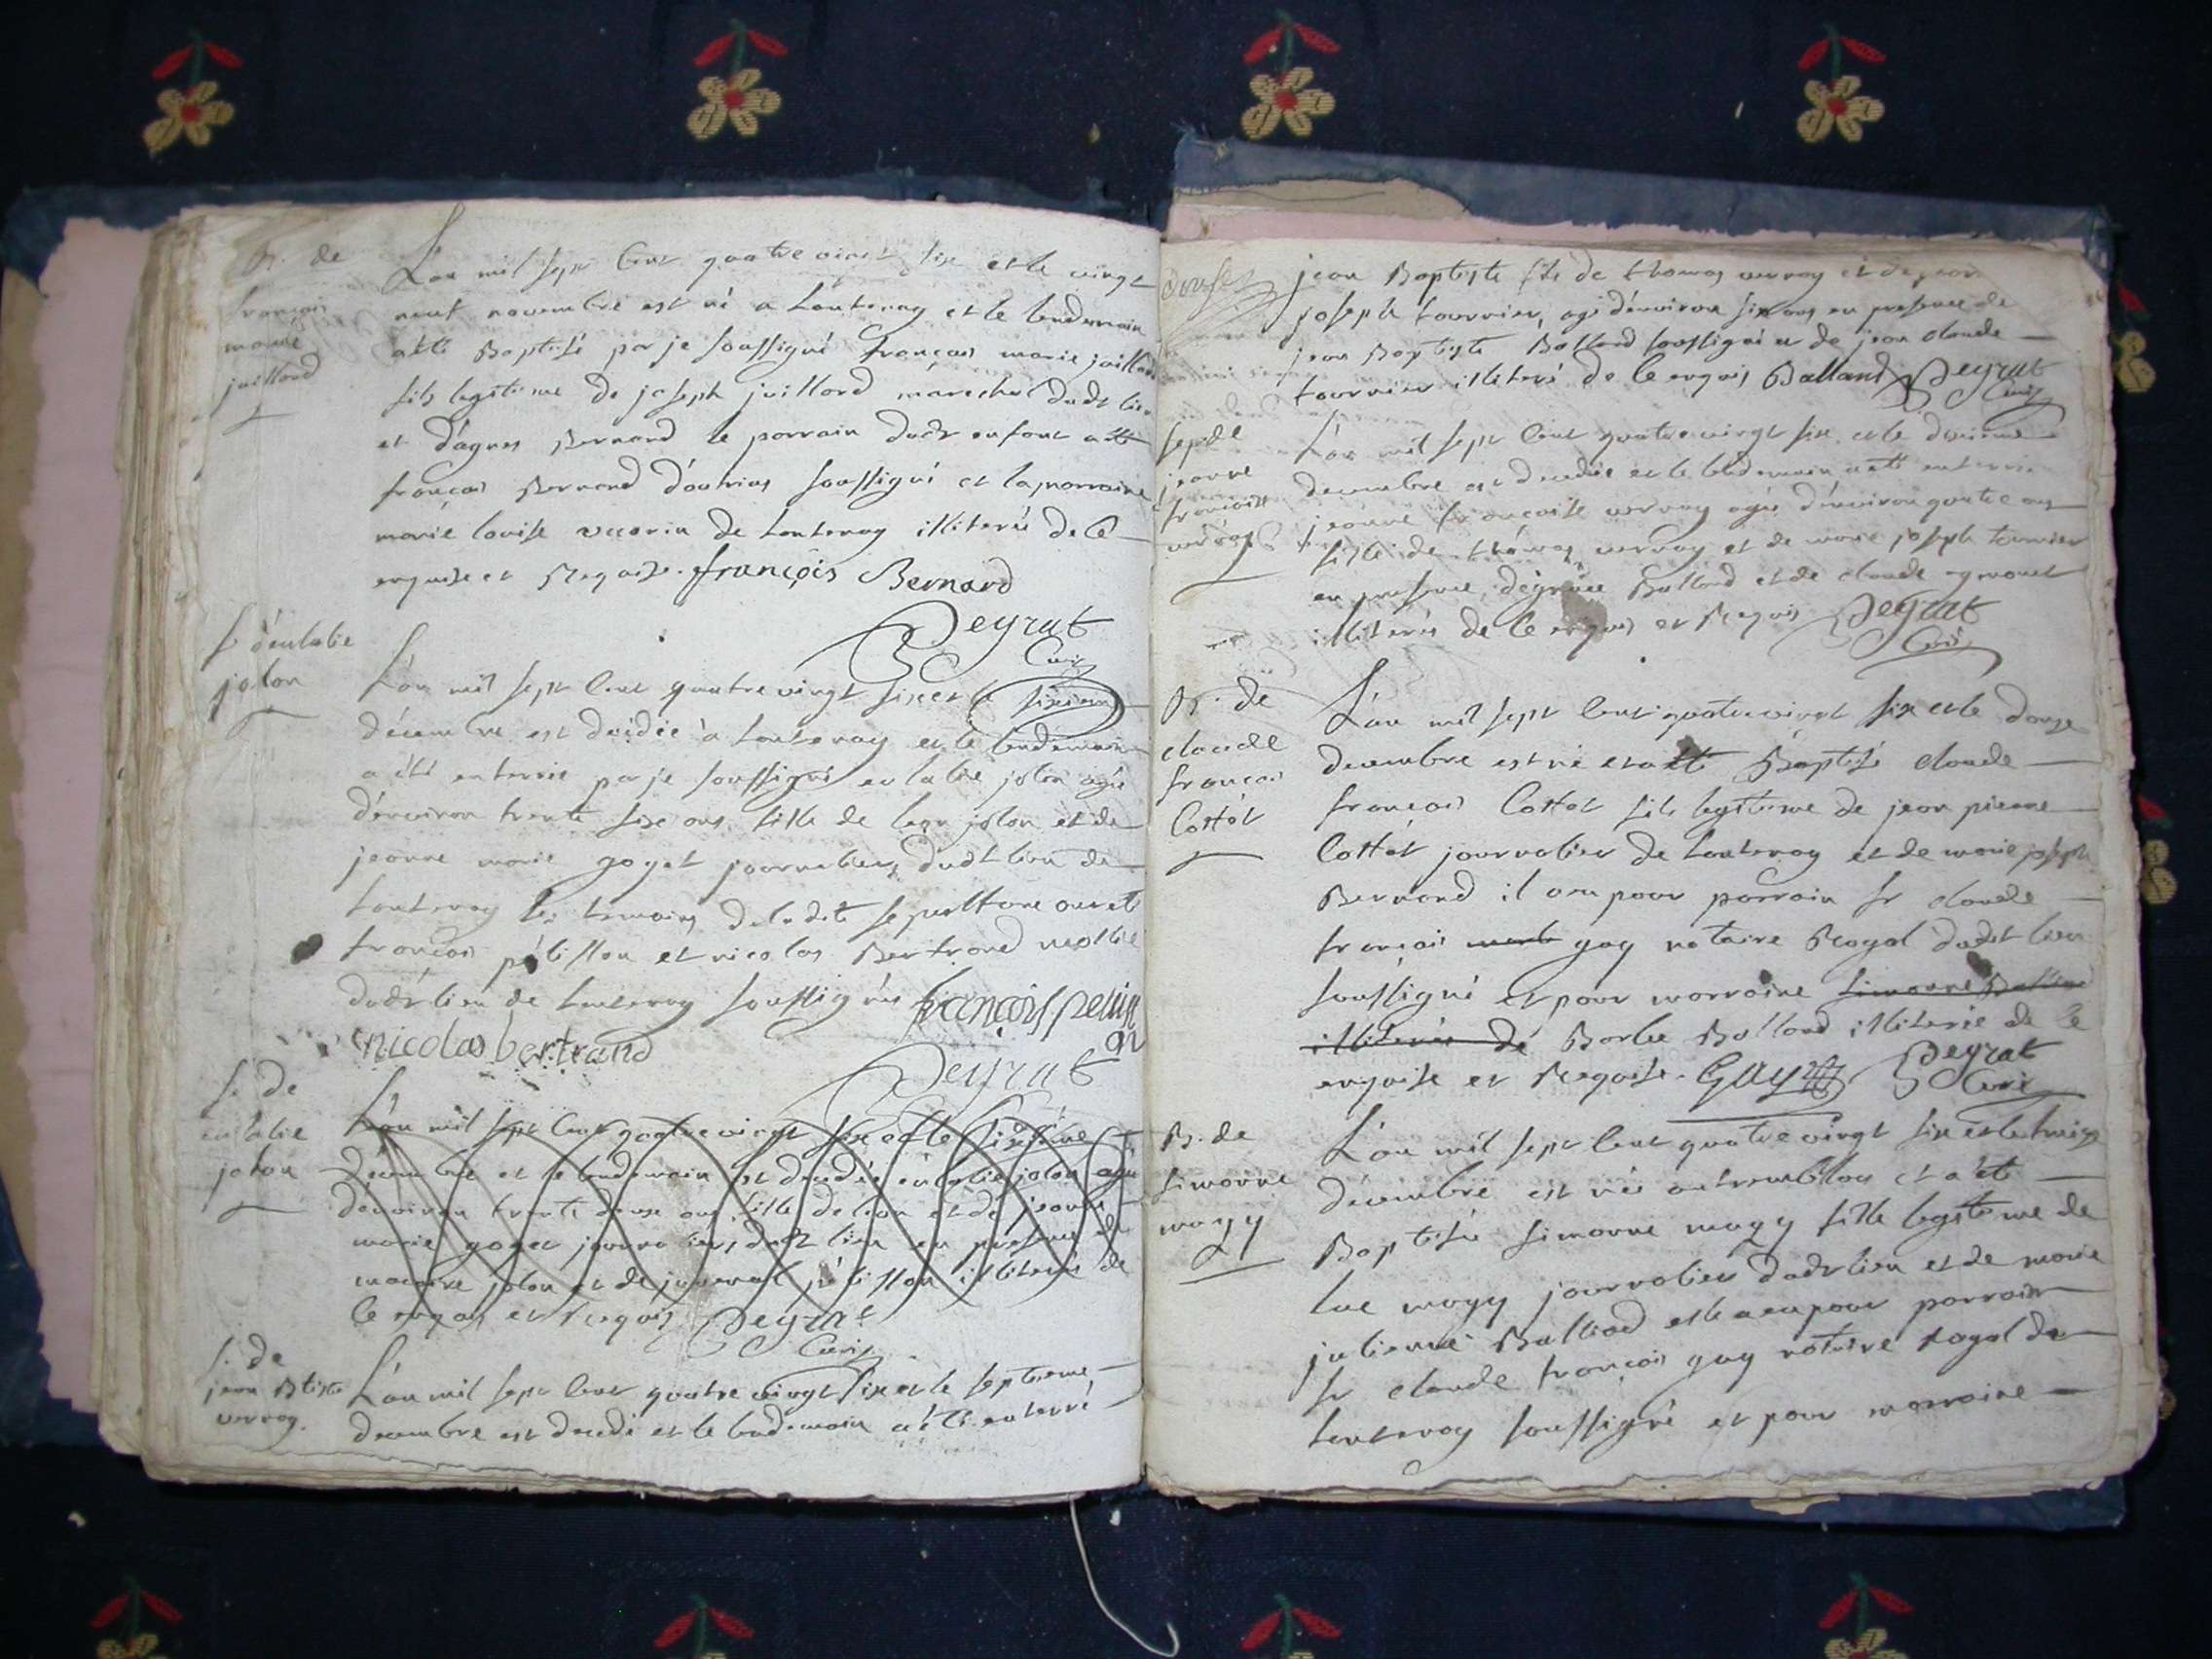 B. de
françois
marie
juillard
L'an mil sept cent quatre vingt six et le vingt
neuf novembre est né a tontenay et le lendemain
a été Baptisé par je soussigné françois marie juillard
fils legitime de joseph juillard marechal dudt lieu
et d'agnes Bernard le parrain dudt enfant a été
françois Bernard soussigné et la marraine
marie louise de tontenay illiterée de ce
enquise et Requise. françois Bernard
Peyrat
Curé
S. d'eulalie
jolon
L'an mil sept cent quatre vingt six et le sixieme
décembre est decédée à tontenay et le lendemain
a été enterrée par je soussigné eulalie jolon agée
d'environ trente six ans fille de leon jolon et de
jeanne marie goget journaliers dudt lieu de
tontenay les temoins de ladite sepulture ont été
françois pélisson et nicolas Bertrand
dudt lieu de tontenay soussignés
nicolas bertrand
Peyrat
S. de
eulalie
jolon
L'an mil sept cent quatre vingt six et le sixiéme
décembre et le lendemain est decedée eulalie jolon agée
denviron trente deux ans fille de leon et de jeanne
marie goget journaliers dudt lieu en presence de
jolon et de juvenal pélisson illiterés de
ce enquis et requis Peyrat
Curé
S. de
jean Btiste
vernay.
L'an mil sept cent quatre vingt six et le septieme
decembre est decedé et le lendemain a été enterré
jean Baptiste fils de thomas vernay et de
joseph tournier, agé d'environ six ans en presence de
jean Baptiste Balland soussigné et de jean claude
tournier illiteré de ce enquis Balland Peyrat
Curé
sep. de
jeanne
françoise
vernay
L'an mil sept cent quatre vingt six et le
decembre est decedée et le lendemain a été enterrée
jeanne françoise vernay agée d'environ quatre ans
fille de thomas vernay et de marie joseph tournier
en presence Balland et de claude
illiterés de ce enquis et Requis Peyrat
Curé
B. de
claude
françois
Cottet
L'an mil sept cent quatre vingt six et le douze
decembre est né et a été Baptisé claude
françois Cottet fils legitime de jean pierre
Cottet journalier de tontenay et de marie joseph
Bernard il a eu pour parrain sr claude
françois gay notaire Royal dudit lieu
soussigné et pour marraine simonne Balland
illiterée de Barbe Balland illiterée de ce
enquise et Requise. Gay Peyrat
Curé
B. de
simonne
magy
L'an mil sept cent quatre vingt six et le treize
décembre est née et a été
Baptisée simonne magy fille legitime de
luc magy journalier dudt lieu et de marie
julienne Balland elle a eu pour parrain
sr claude françois gay notaire royal de
tontenay soussigné et pour marraine